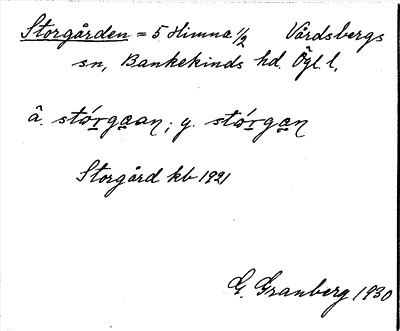 Storgården = 5 Himna 1/2 Vårdsbergs
sn, Bankekinds hd. Ögl. l,
â. stórgaan; y. stórgan
Storgård kb 1921
G. Granberg 1930